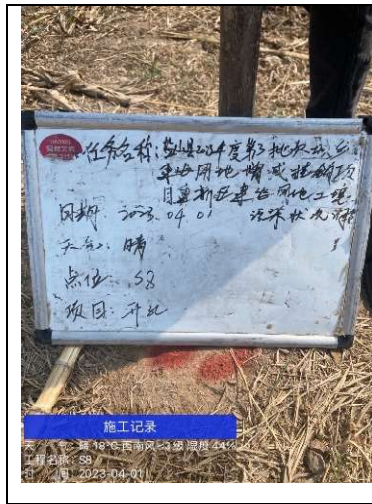 任务名称:盐山县2024年度第3批次城乡
建设用地增减挂钩项
目建新区建设用地土壤
日期: 2023.04.01 污染状况调查
天气: 晴
点位: S8
项目: 开孔
施工记录
天 气: 晴 18℃ 西南风 ≤3级 湿度 44%
工程名称: S8
日 期: 2023-04-01